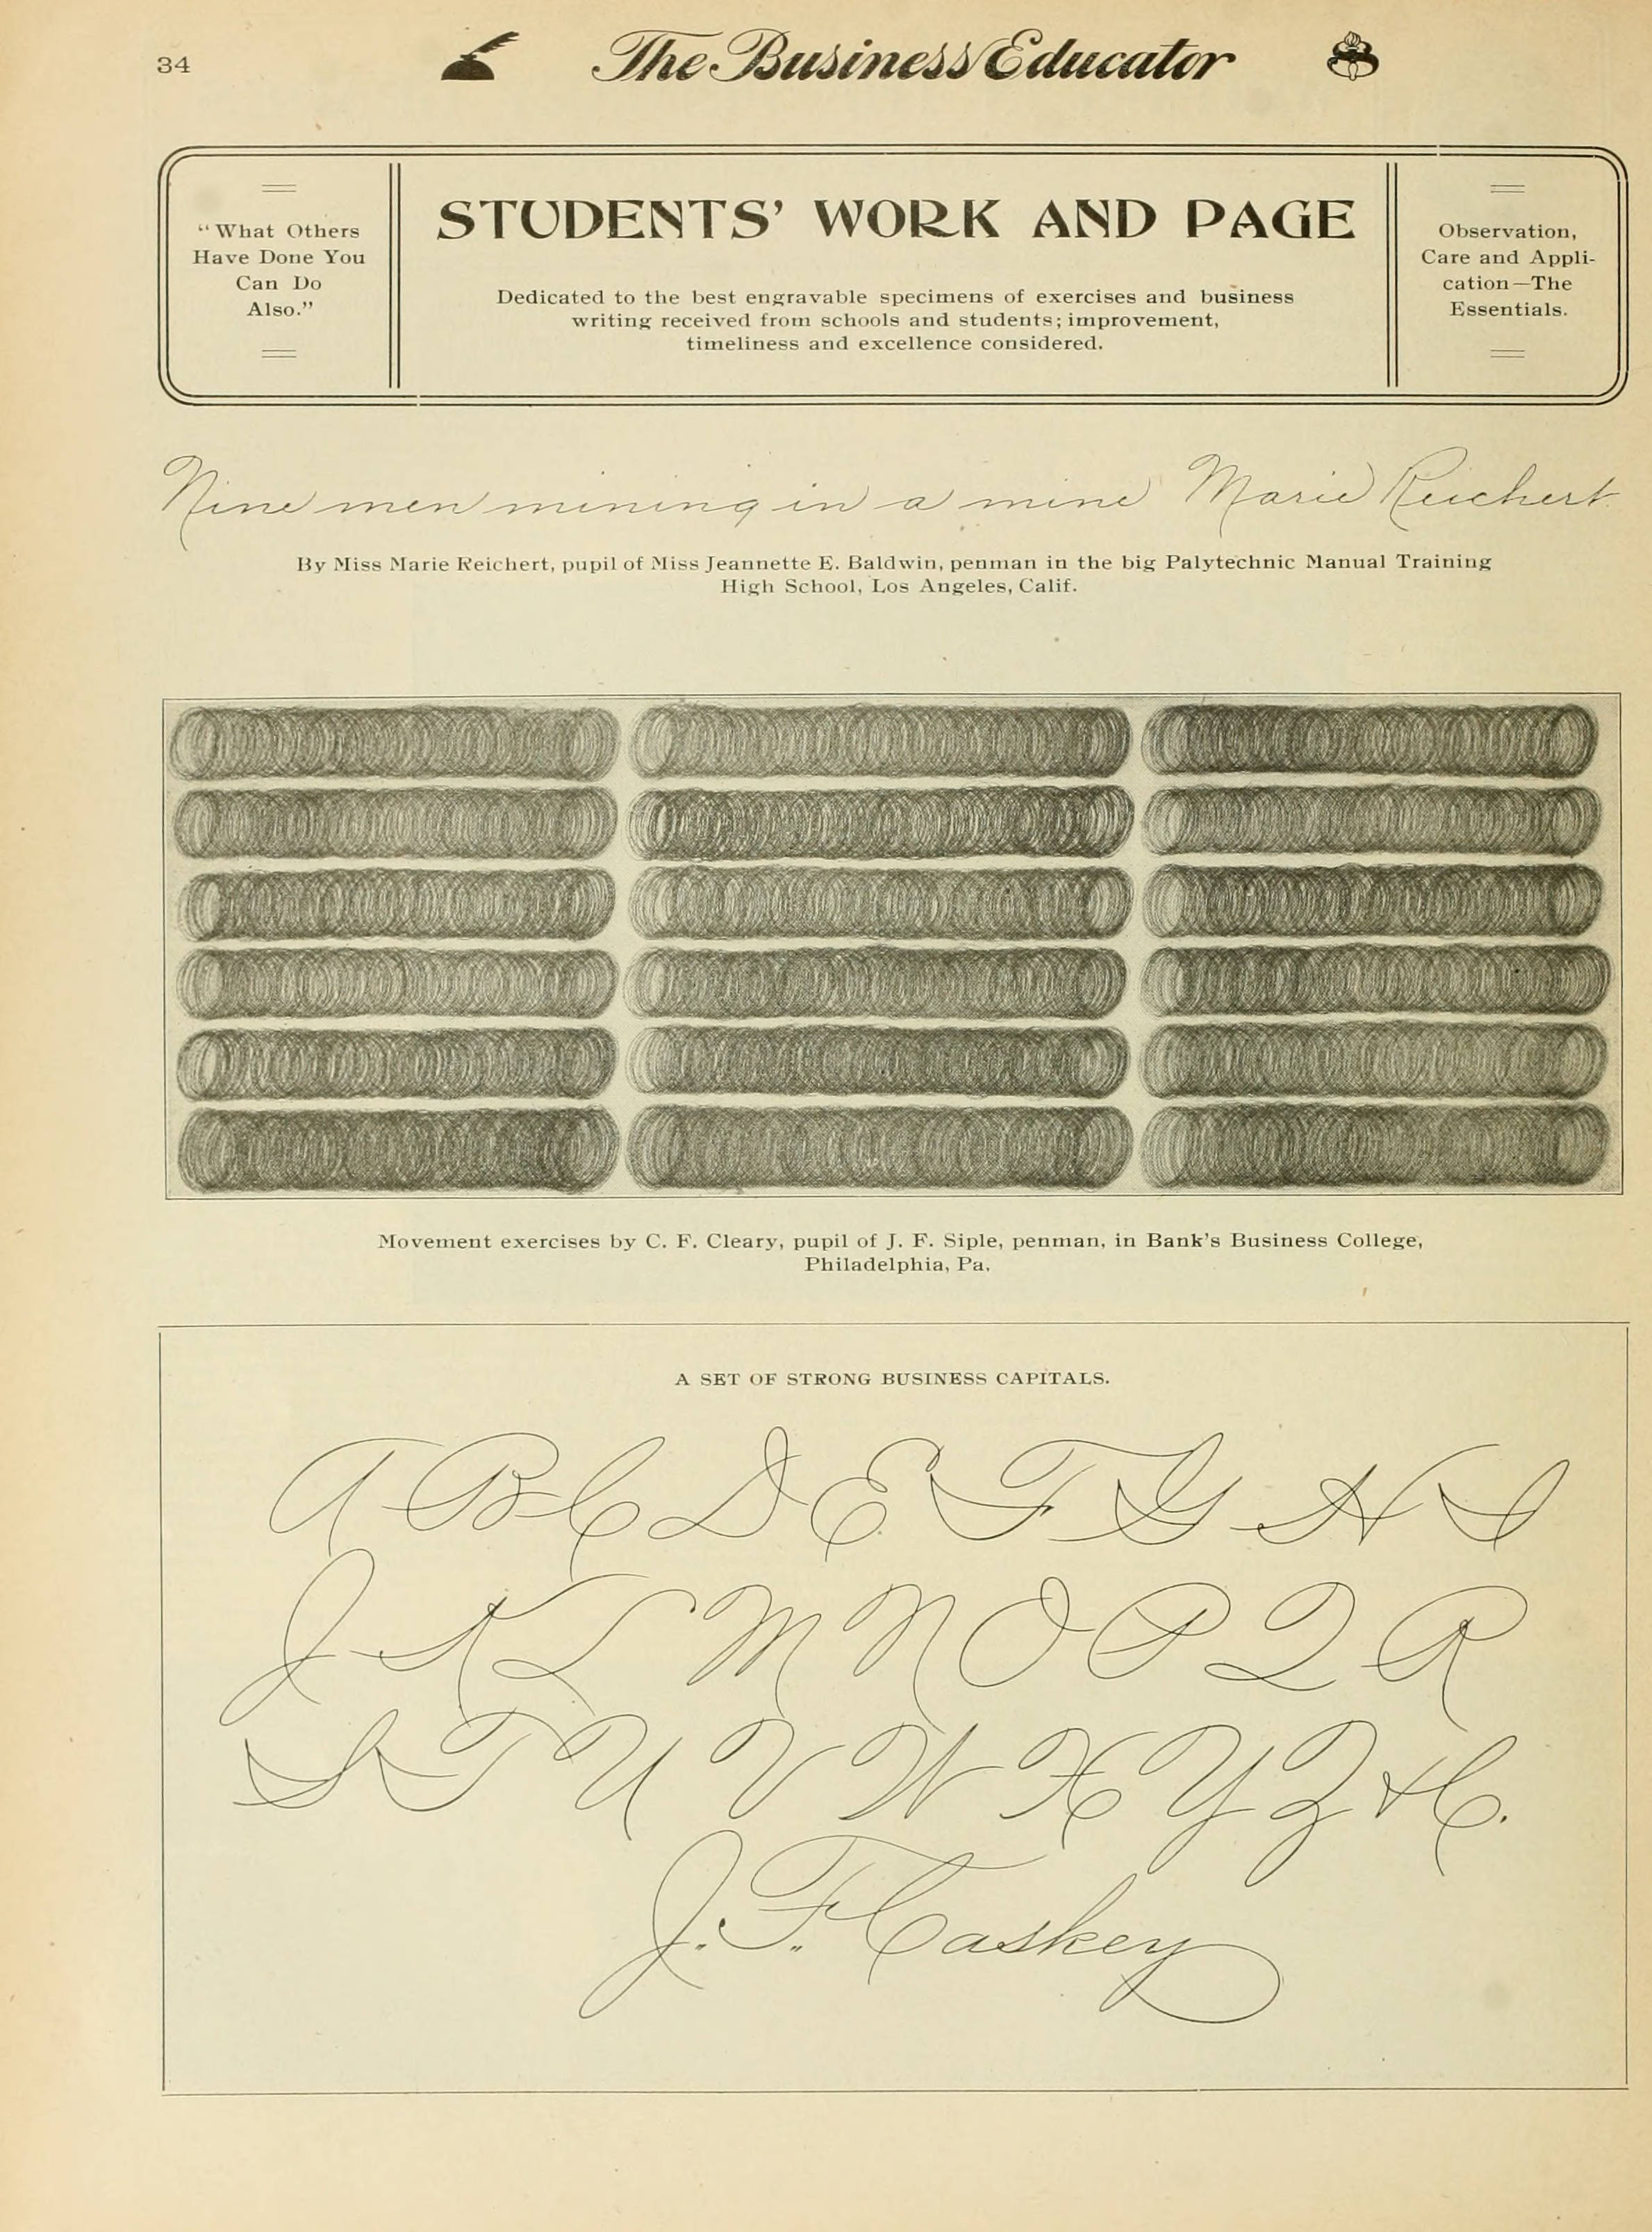 34
The Business Educator
"What Others
Have Done You
Can Do
Also."
STUDENTS' WORK AND PAGE
Dedicated to the best engravable specimens of exercises and business
writing received from schools and students; improvement,
timeliness and excellence considered.
Observation,
Care and Appli-
cation—The
Essentials.
Nine men mining in a mine Marie Reichert
By Miss Marie Reichert, pupil of Miss Jeannette E. Baldwin, penman in the big Palytechnic Manual Training
High School, Los Angeles, Calif.
Movement exercises by C. F. Cleary, pupil of J. F. Siple, penman, in Bank's Business College,
Philadelphia, Pa.
A SET OF STRONG BUSINESS CAPITALS.
A B C D E F G H I
J K L M N O P Q R
S T U V W X Y Z & Co.
J. F. Caskey